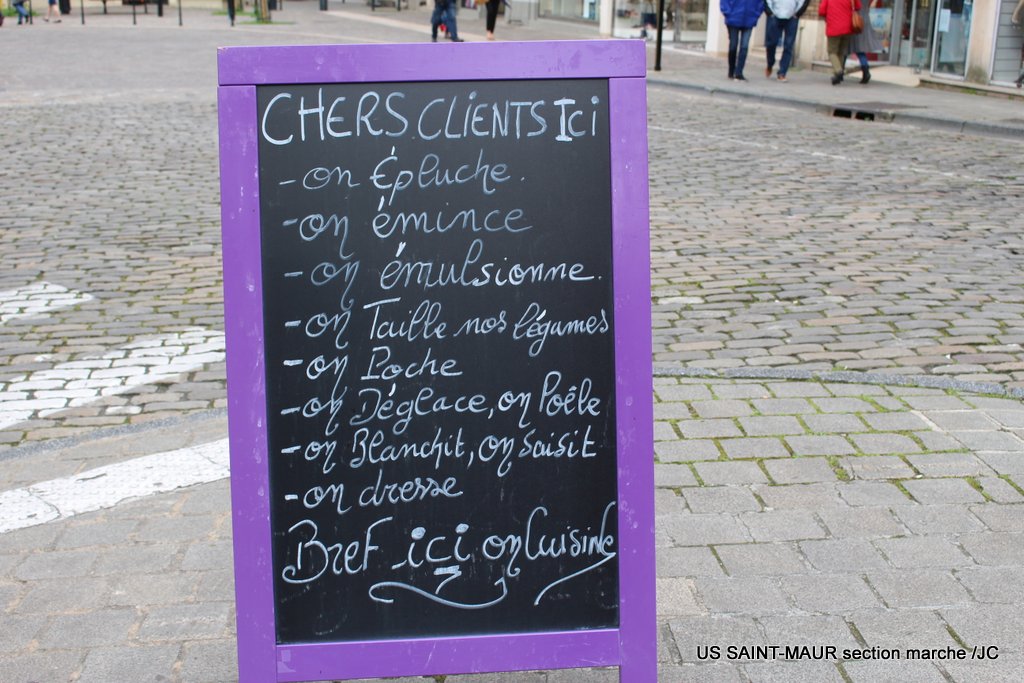 CHERS CLIENTS Ici
- on Épluche.
- on émince
- on émulsionne.
- on Taille nos légumes
- on Poche
- on Déglace, on Poêle
- on Blanchit, on Saisit
- on dresse
Bref ici on Cuisine
US SAINT-MAUR section marche /JC